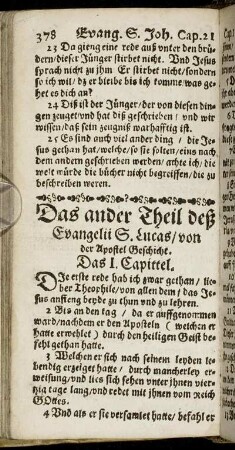 378 Evang. S. Joh. Cap. 21
23 Da gieng eine rede auß vnter den brü-
dern/dieser Jünger stirbet nicht. Vnd Jesus
sprach nicht zu jhm Er stirbet nicht/sondern
so ich wil/ dz er bleibe bis ich komme/was ge-
het es dich an?
24 Diß ist der Jünger/der von diesen din-
gen zeuget/vnd hat diß geschrieben/ vnd wir
wissen/daß sein zeugniß warhafftig ist.
25 Es sind auch viel ander ding/ die Je-
sus gethan hat/welche/so sie solten/eins nach
dem andern geschrieben werden/achte ich/ die
welt würde die bücher nicht begreiffen/die zu
beschreiben weren.
Das ander Theil deß
Evangelii S. Lucas/von
der Apostel Geschicht.
Das I. Capittel.
DIe erste rede hab ich zwar gethan/ lie-
ber Theophile/von allen dem/ das Je-
sus anfieng beyde zu thun vnd zu lehren.
2 Bis an den tag/ da er auffgenommen
ward/nachdem er den Aposteln (welchen er
hatte erwehlet) durch den heiligen Geist be-
fehl gethan hatte.
3 Welchen er sich nach seinem leyden le-
bendig erzeiget hatte/ durch mancherley er-
weisung/vnd lies sich sehen vnter jhnen vier-
zig tage lang/vnd redet mit jhnen vom Reich
GOttes.
4 Vnd als er sie versamlet hatte/ befahl er